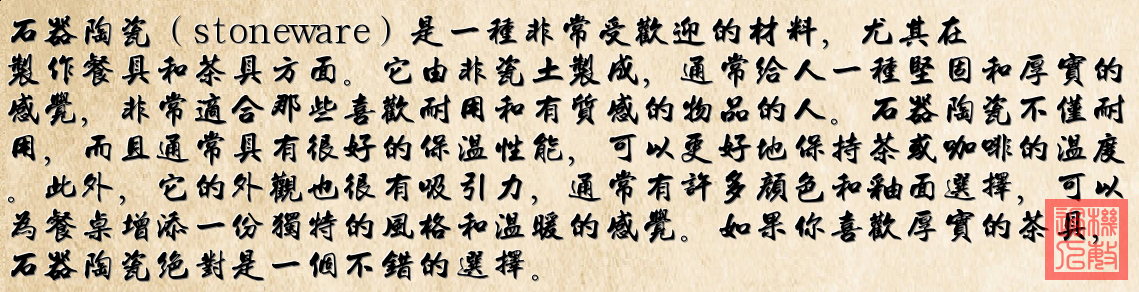 石器陶瓷（stoneware）是一種非常受歡迎的材料，尤其在
製作餐具和茶具方面。它由非瓷土製成，通常給人一種堅固和厚實的
感覺，非常適合那些喜歡耐用和有質感的物品的人。石器陶瓷不僅耐
用，而且通常具有很好的保溫性能，可以更好地保持茶或咖啡的溫度
。此外，它的外觀也很有吸引力，通常有許多顏色和釉面選擇，可以
為餐桌增添一份獨特的風格和溫暖的感覺。如果你喜歡厚實的茶具，
石器陶瓷絕對是一個不錯的選擇。